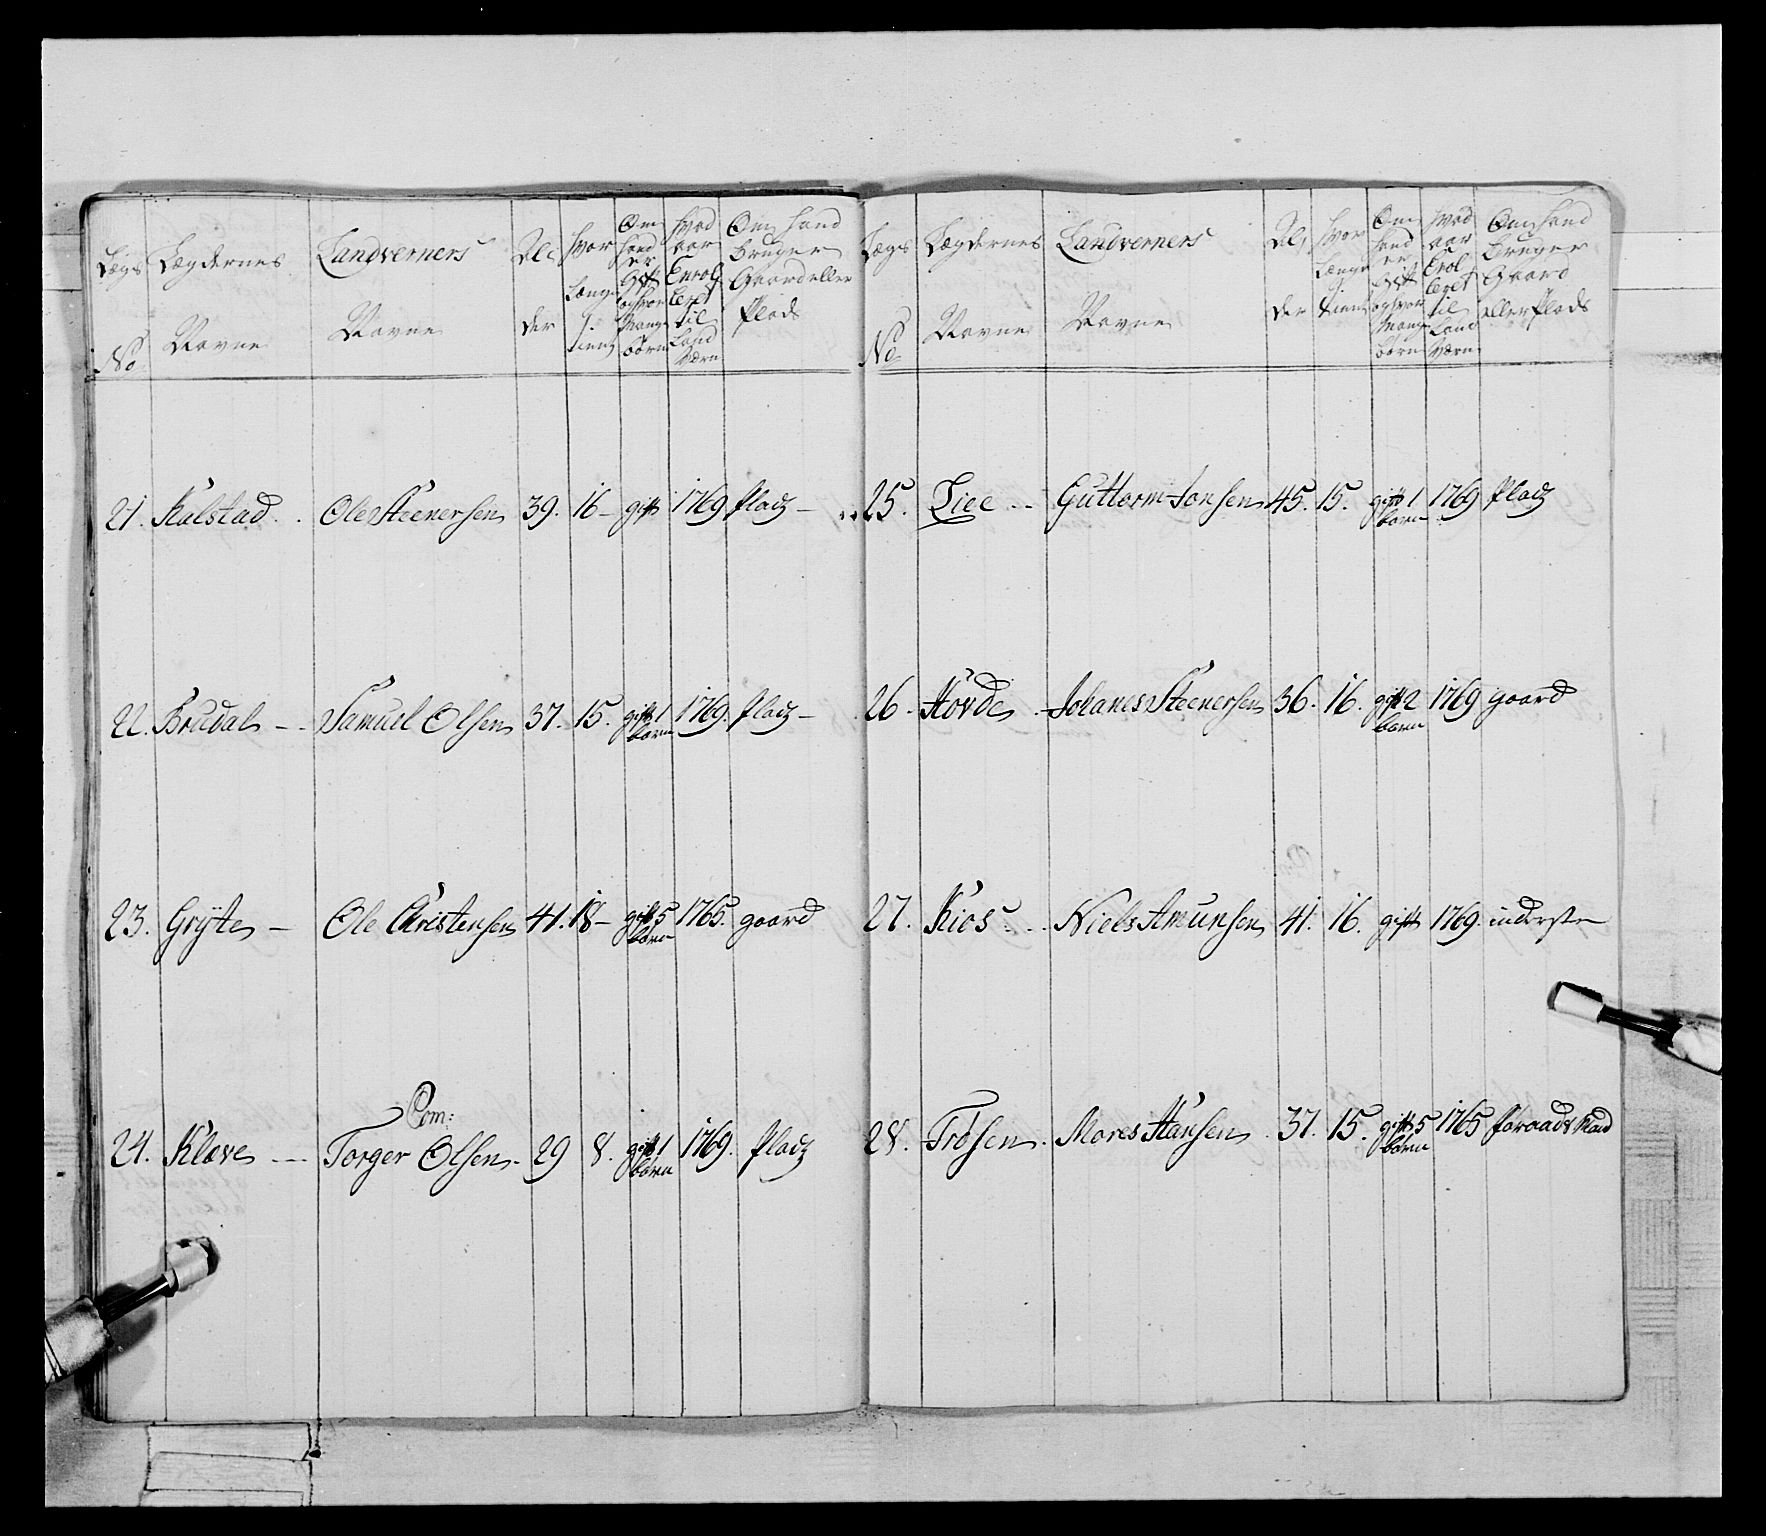 Lægs No
Lægdernes Navne
Landverners Navne
Alder
Hvor længe tient
Om hand er gift og hvor mange børn
Hvad aar Enroleret til Land Værn
Om hand bruger Gaard eller Plads
21. Kalstad Ole Steenersen 39. 16 – gift 1769 Platz –
22. Brudal – Samuel Olsen 37. 15. gift 1 børn 1769. Platz –
23. Gryte – Ole Christensen 41. 18 – gift 5 børn 1765. gaard
Com:
24. Klæve – Torger Olsen. 29 8. gift 1 børn 1769. Platz
Lægs No
Lægdernes Navne
Landverners Navne
Alder
Hvor længe tient
Om hand er gift og hvor mange børn
Hvad aar Enrolleret til Land Værn
Om hand bruger Gaard eller Plads
25. Liee Guttorm Jonsen 45. 15. gift 1 børn 1769 Platz
26. Hovde Johanes Steenersen 36. 16. gift 2 børn 1769 gaard
27. Kios Niels Amunsen 41. 16. gift 1769. inderste
28. Frøsen. Mores Hansen 37. 15. gift 5 børn 1765